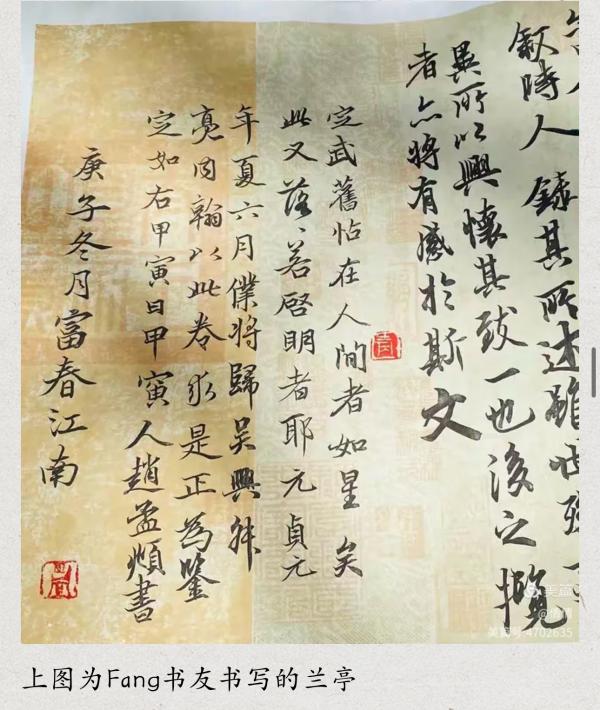 叙時人錄其所述雖世殊
異所以興懷其致一也後之攬
者亦將有感於斯文
定武舊帖在人間者如星矣
此又落落若啓明者耶元貞元
年夏六月僕將歸吴興叔
亮内翰以此卷求是正為鑒
定如右甲寅日甲寅人趙孟頫書
庚子冬月富春江南
美篇
美篇号 4702635
上图为Fang书友书写的兰亭